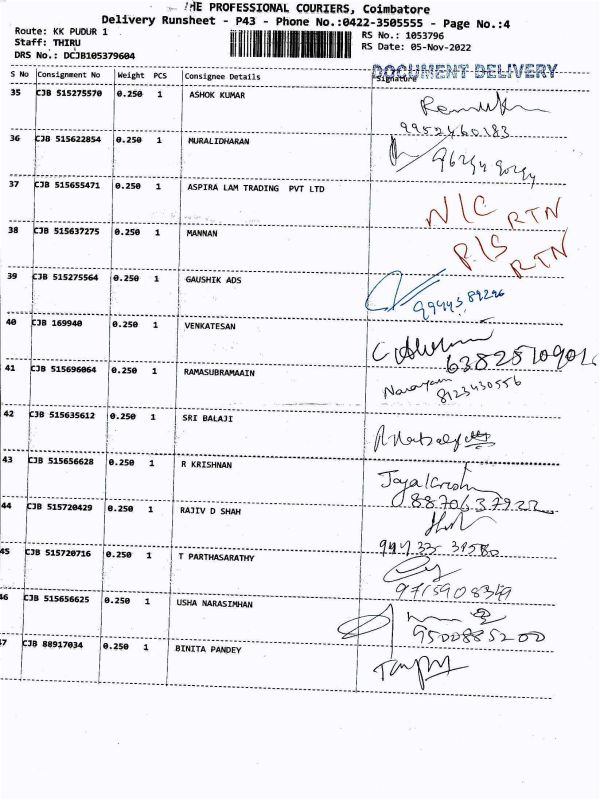 THE PROFESSIONAL COURIERS, Coimbatore
Delivery Runsheet - P43 - Phone No.:0422-3505555 - Page No.:4
Route: KK PUDUR 1
RS No.: 1053796
Staff: THIRU
RS Date: 05-Nov-2022
DRS No.: DCJB105379604
DOCUMENT DELIVERY
S No Consignment No Weight PCS Consignee Details Signature
35 CJB 515275570 0.250 1 ASHOK KUMAR
9952460183
36 CJB 515622854 0.250 1 MURALIDHARAN
37 CJB 515655471 0.250 1 ASPIRA LAM TRADING PVT LTD
N/C RTN
38 CJB 515637275 0.250 1 MANNAN
P/S RTN
39 CJB 515275564 0.250 1 GAUSHIK ADS
40 CJB 169940 0.250 1 VENKATESAN
41 CJB 515696064 0.250 1 RAMASUBRAMAAIN
Narayan
8123430556
42 CJB 515635612 0.250 1 SRI BALAJI
43 CJB 515656628 0.250 1 R KRISHNAN
44 CJB 515720429 0.250 1 RAJIV D SHAH
45 CJB 515720716 0.250 1 T PARTHASARATHY
9715908349
46 CJB 515656625 0.250 1 USHA NARASIMHAN
9500885200
47 CJB 88917034 0.250 1 BINITA PANDEY